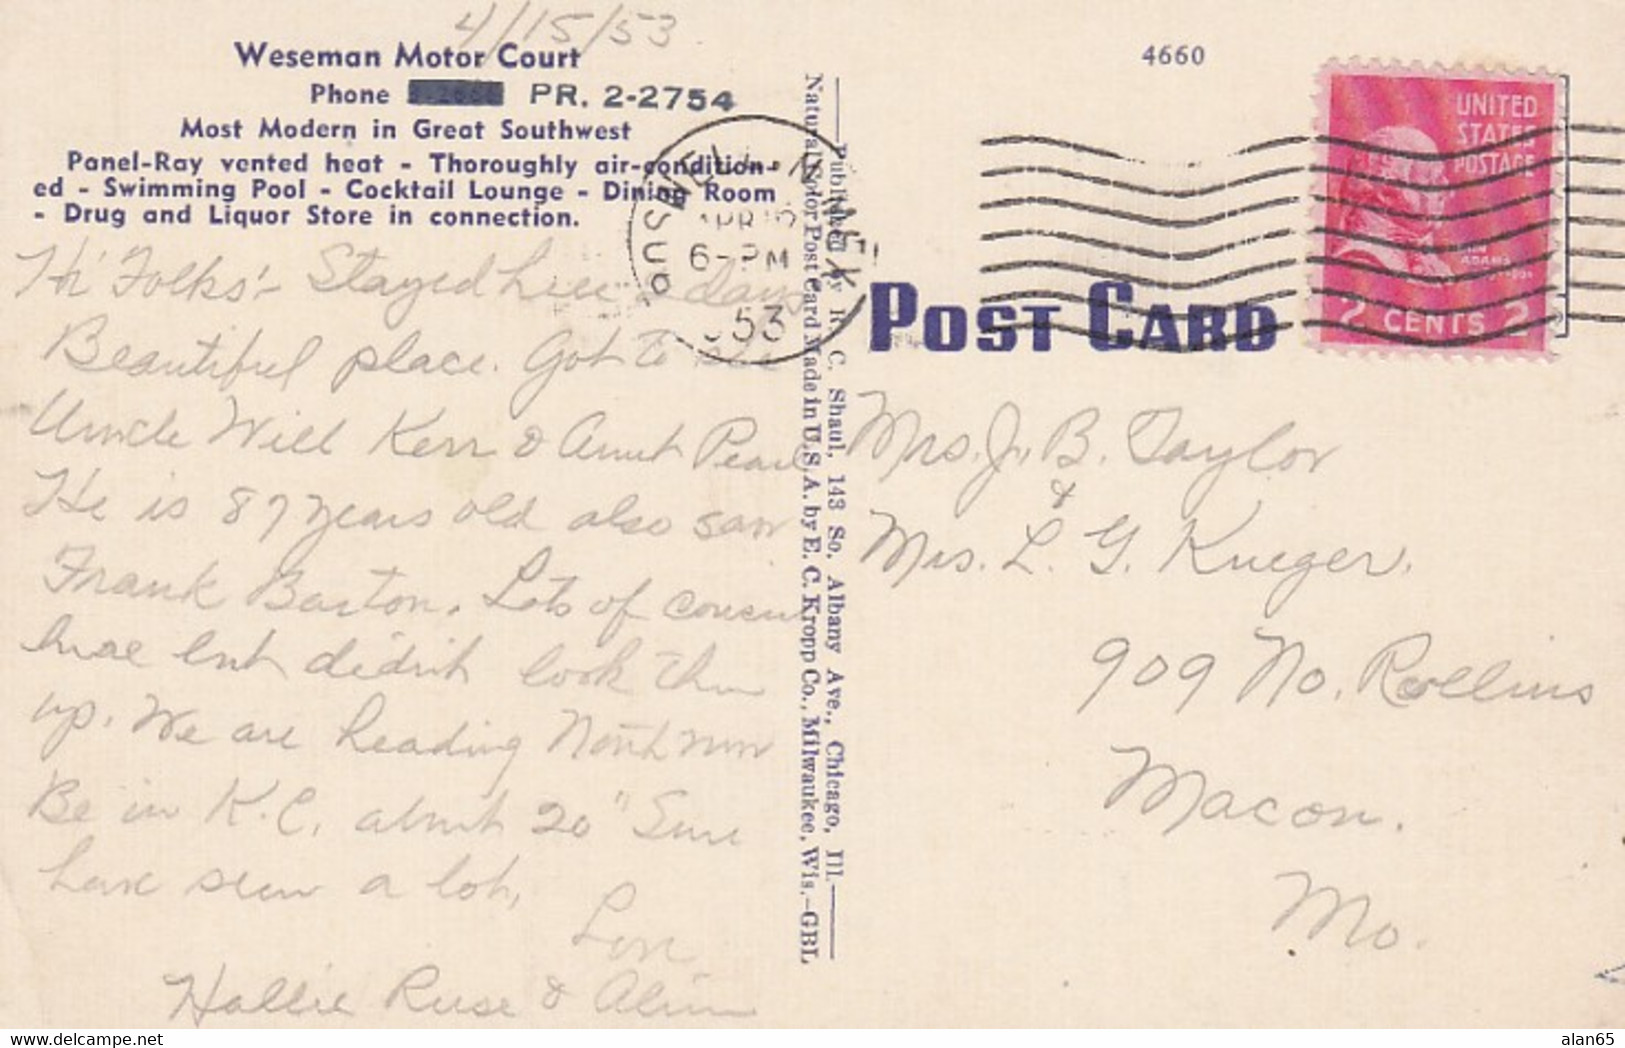 4/15/53
Weseman Motor Court
Phone PR. 2-2754
Most Modern in Great Southwest
Panel-Ray vented heat - Thoroughly air-condition-
ed - Swimming Pool - Cocktail Lounge - Dining Room
- Drug and Liquor Store in connection.
Hi Folks - Stayed here days
Beautiful place. Got to see
Uncle Will Kerr & Aunt Pearl
He is 87 years old also saw
Frank Barton. Lots of cousins
here but didn't look them
up. We are heading North now
Be in K.C. about 20" Sure
have seen a lot.
Love
Hallie Ruse &
6-PM
53
Published by R. C. Shaul, 143 So. Albany Ave., Chicago, Ill.
Natural Color Post Card Made in U.S.A. by E. C. Kropp Co., Milwaukee, Wis.-GBL
4660
POST CARD
UNITED
STATES
POSTAGE
ADAMS
2 CENTS 2
Mrs. J. B. Taylor
&
Mrs. L. G. Krueger.
909 No. Rollins
Macon.
Mo.
alan65